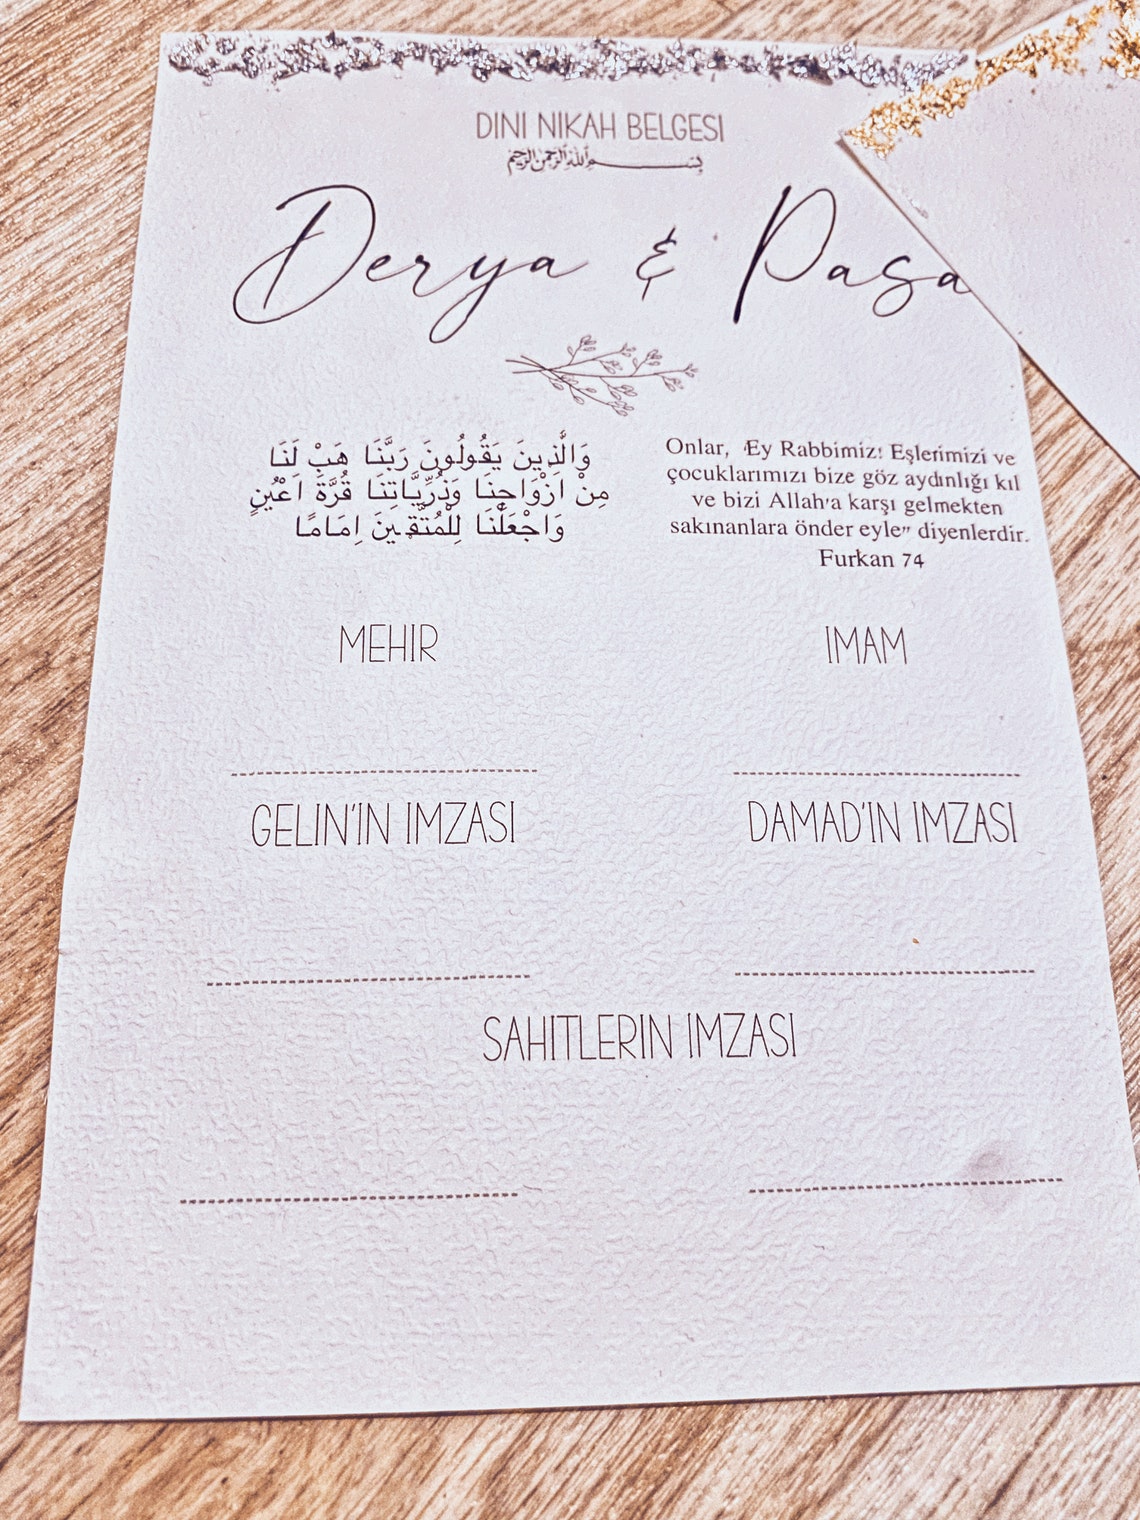 DINI NIKAH BELGESI
بسم الله الرحمن الرحيم
Derya & Pasa
وَالَّذِينَ يَقُولُونَ رَبَّنَا هَبْ لَنَا
مِنْ اَزْوَاجِنَا وَذُرِّيَّاتِنَا قُرَّةَ اَعْيُنٍ
وَاجْعَلْنَا لِلْمُتَّقِينَ اِمَامًا
Onlar, ‘Ey Rabbimiz! Eşlerimizi ve
çocuklarımızı bize göz aydınlığı kıl
ve bizi Allah'a karşı gelmekten
sakınanlara önder eyle” diyenlerdir.
Furkan 74
MEHIR
IMAM
GELIN'IN IMZASI
DAMAD'IN IMZASI
SAHITLERIN IMZASI